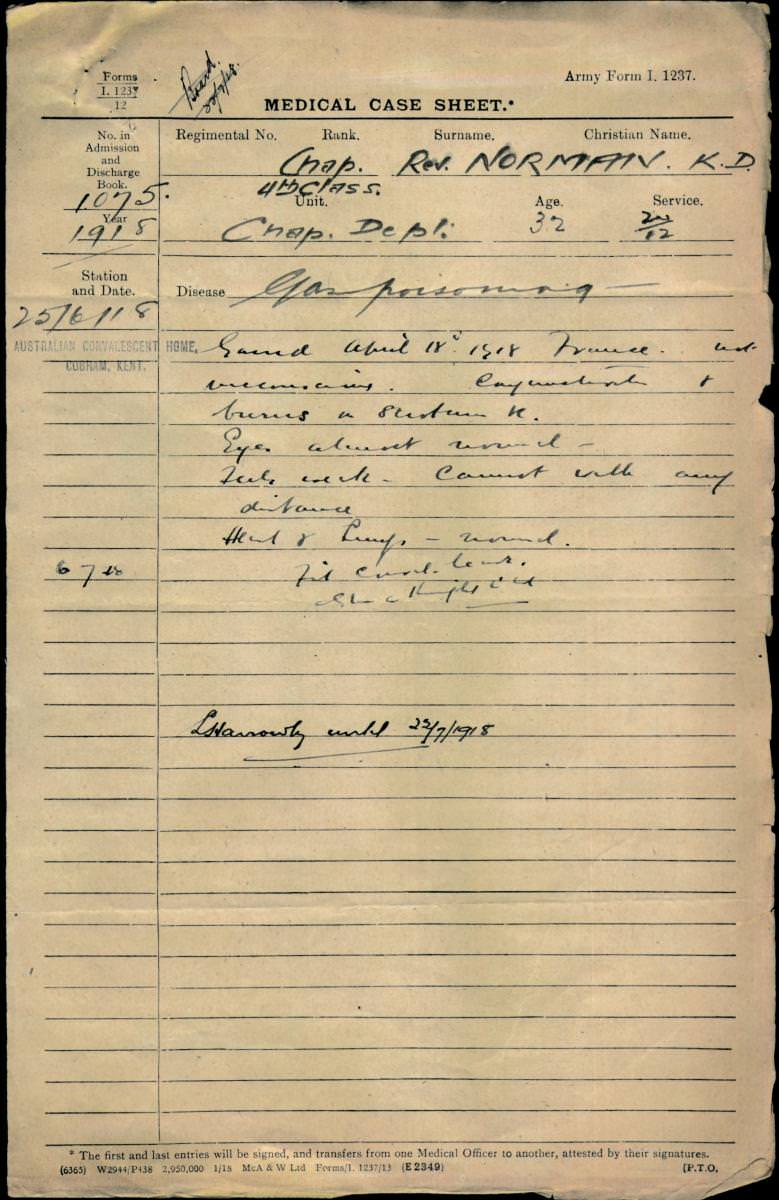 Forms
I. 1237
12
Board.
Army Form I. 1237.
MEDICAL CASE SHEET.*
No. in
Admission
and
Discharge
Book.
1075.
Year
1918
Regimental No. Rank. Surname. Christian Name.
Chap. Rev. NORMAN. K.D.
4th Class.
Unit. Age. Service.
Chap. Dept. 32
Station
and Date.
Disease Gas poisoning
25/6/18
AUSTRALIAN CONVALESCENT HOME,
COBHAM, KENT.
Gassed April 18th 1918 France. not
unconscious. Conjunctivitis &
burns on Scrotum
Eyes almost normal -
Feels weak - Cannot walk any
distance
Heart & Lungs - normal.
6 7 18
Fit leave.
until 22/7/1918
* The first and last entries will be signed, and transfers from one Medical Officer to another, attested by their signatures.
(6365) W2944/P438 2,950,000 1/18 McA & W Ltd Forms/I. 1237/13 (E 2349) [P.T.O.